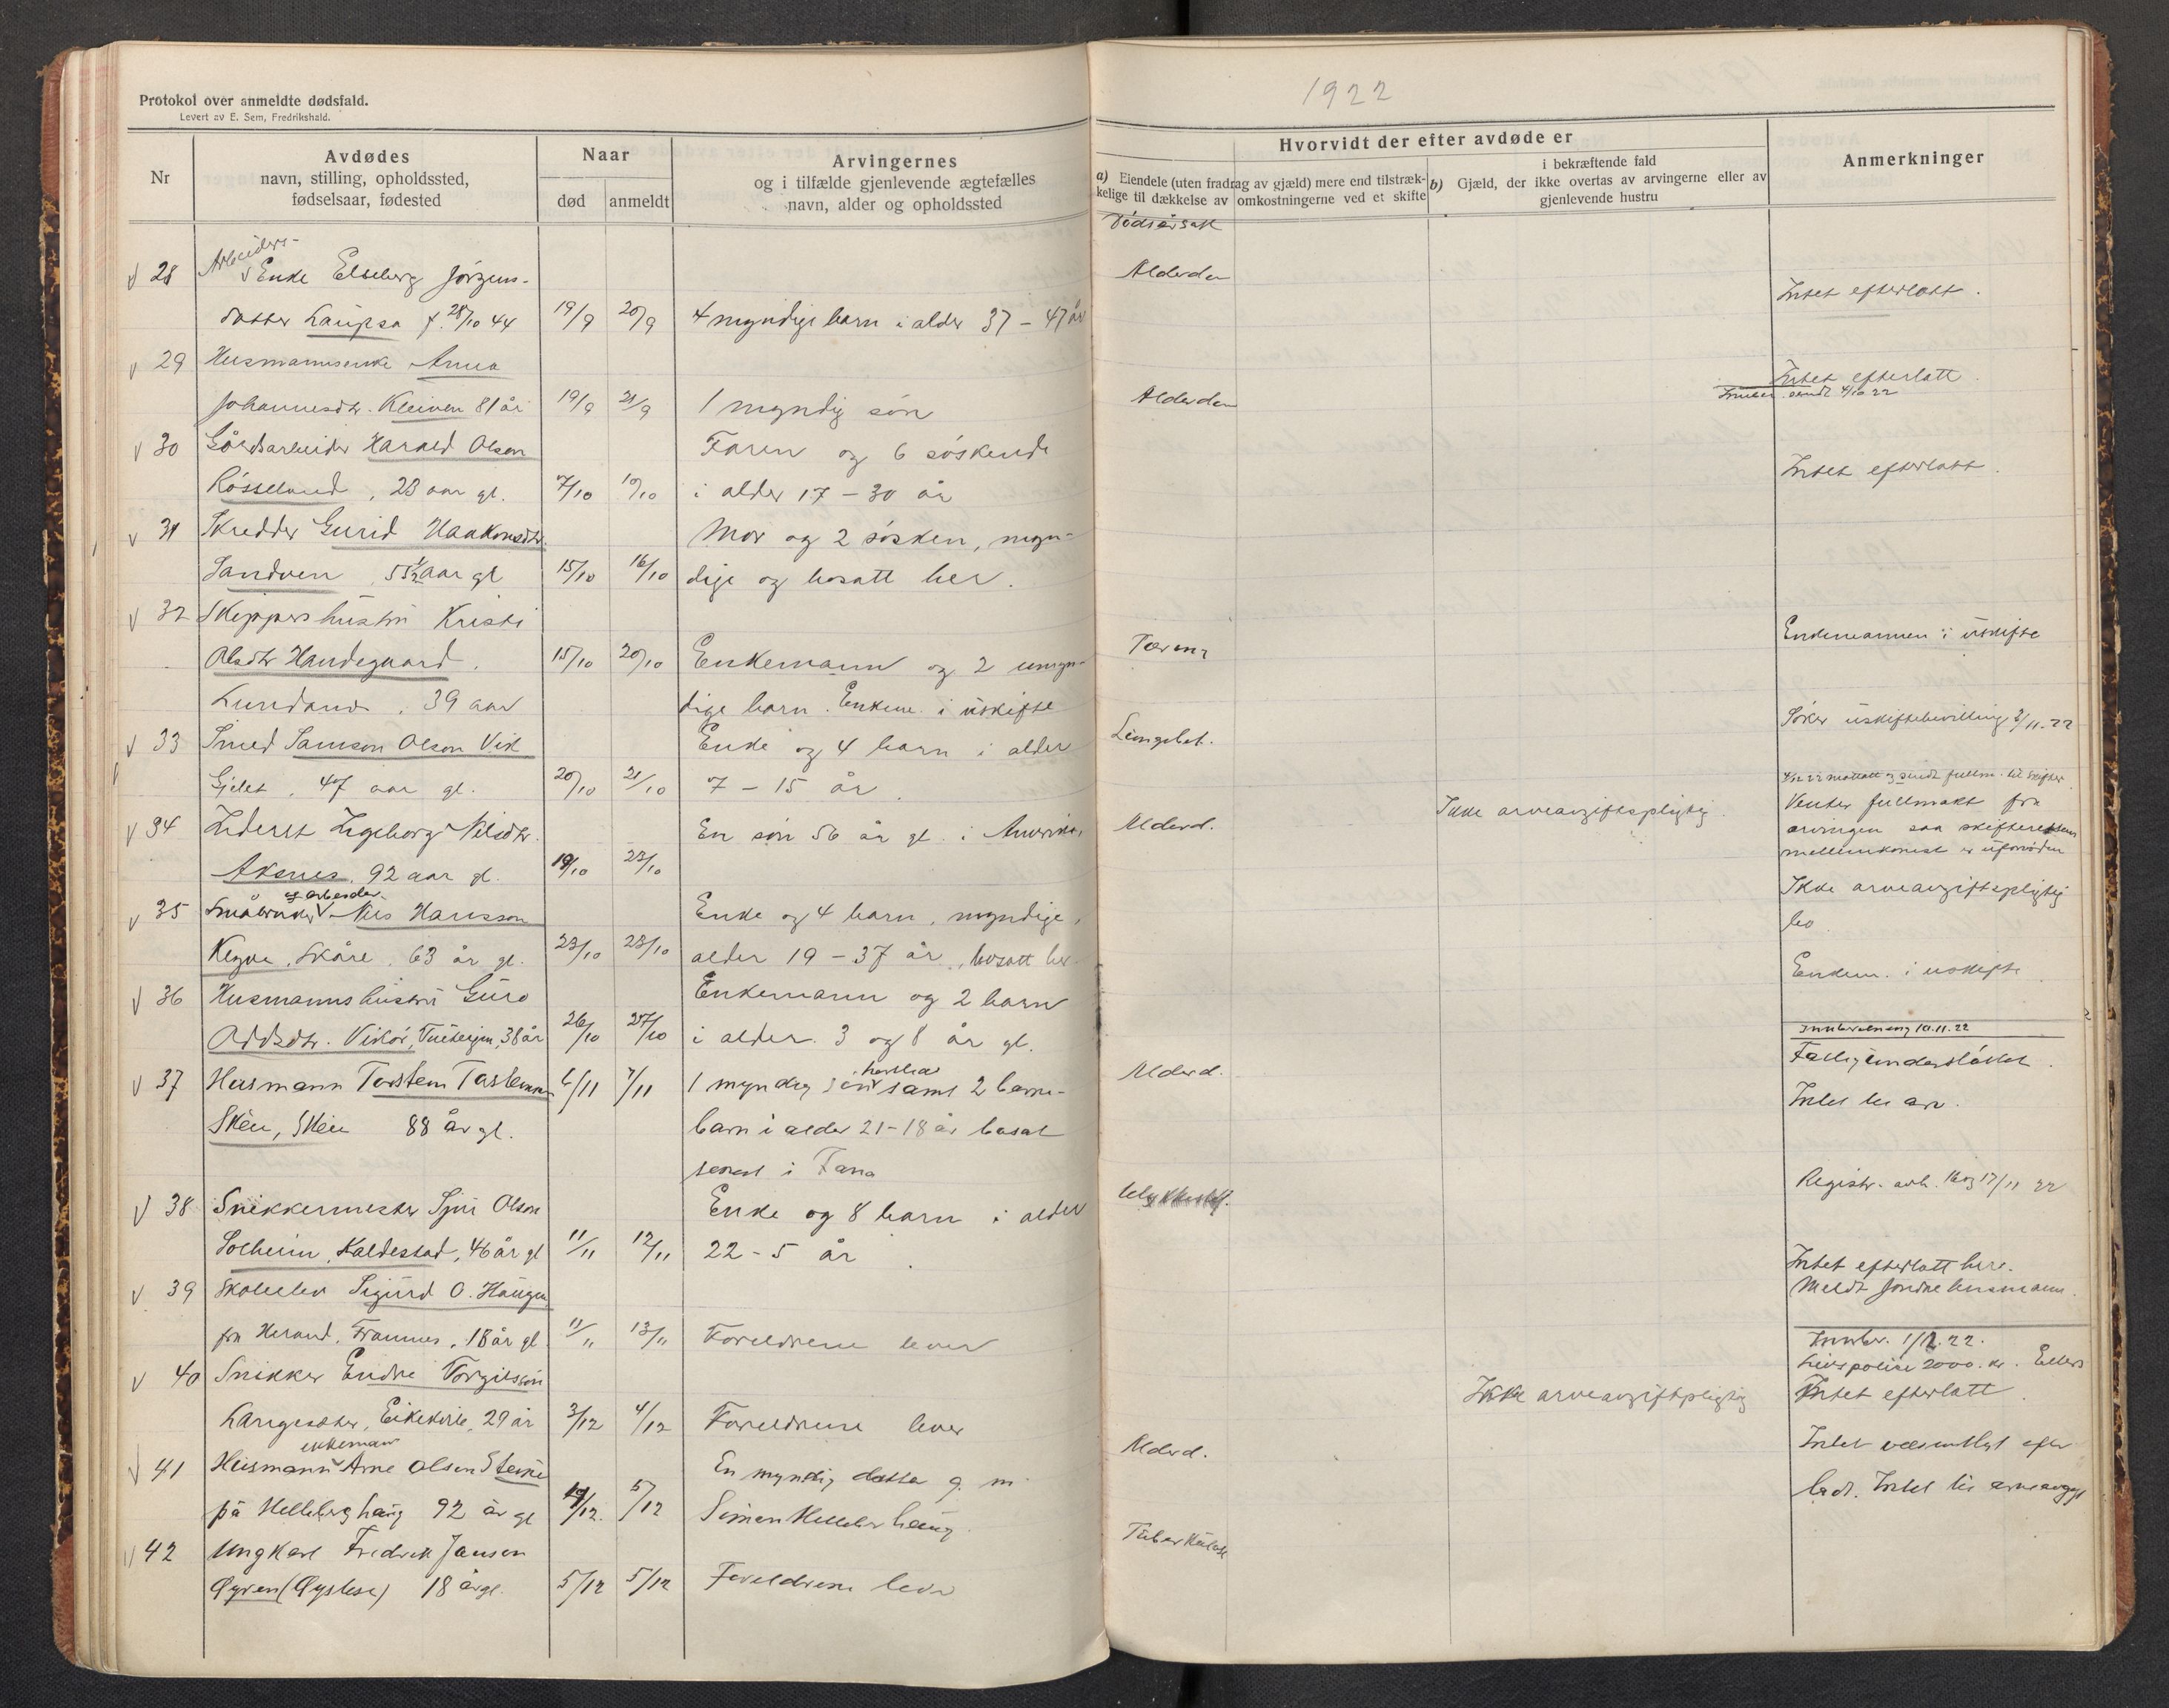 Protokol over anmeldte dødsfald.
Levert av E. Sem, Fredrikshald.
Nr
Avdødes
navn, stilling, opholdssted,
fødselsaar, fødested
Naar
død
anmeldt
Arvingernes
og i tilfælde gjenlevende ægtefælles
navn, alder og opholdssted
28 Arbeiders-
Enke Elseberg Jørgens-
datter Laupsa f. 28/10 44 19/9 20/9 4 myndige barn i alder 37 - 47 år
29 Husmannsenke Anna
Johannesdtr. Kleiven 81 år 19/9 21/9 1 myndig søn
30 Gårdsarbeider Harald Olson Faren og 6 søskende
Røsseland, 28 aar gl. 7/10 10/10 i alder 17 - 30 år
31 Skredder Gurid Haakonsdtr. Mor og 2 søsken, myn-
Sandven 55 1/2 aar gl 15/10 16/10 dige og bosatt her.
32 Skippershustru Kristi
Olsdtr Handegaard. 15/10 20/10 Enkemann og 2 umyn-
Lundanes. 39 aar dige barn. Enkem. i uskifte
33 Smed Samson Olson Vik Enke og 4 barn i alder
47 aar gl. 20/10 21/10 7 - 15 år.
34 Ingeborg Nilsdtr. En søn 56 år gl. i Amerika
Aksnes, 92 aar gl. 19/10 23/10
35 Småbruker og arbeider Nils Hansson Enke og 4 barn, myndige,
Skåre, 63 år gl. 23/10 23/10 alder 19 - 37 år, bosatt her
36 Husmannshustru Guro Enkemann og 2 barn
Oddsdtr. Vikør, 38 år 26/10 27/10 i alder 3 og 8 år gl.
37 Husmann Torstein Torsteinsen 6/11 7/11 1 myndig søn samt 2 barne-
Skeie, Skeie 88 år gl. barn i alder 21-18 år bosat
senest i Fana
38 Snikkermester Sjur Olson Enke og 8 barn i alder
Solheim, Kaldestad, 46 år gl 11/11 12/11 22 - 5 år.
39 Skoleelev Sigurd O. Haugen
fra Herand, Framnes, 18 år gl. 11/11 13/11 Foreldrene lever
40 Snikker Endre Torgilsson
Langesæter, 29 år 3/12 4/12 Foreldrene lever
41 Husmann enkeman Arne Olsen Steine En myndig datter g. m.
på Helleberghaug 92 år gl 4/12. 5/12 Simon Helleberhaug.
42 Ungkarl Fredrik Jansen
Øyren (Øystese) 18 år gl. 5/12 5/12 Foreldrene lever
1922
Hvorvidt der efter avdøde er
a) Eiendele (uten fradrag av gjæld) mere end tilstræk-
kelige til dækkelse av omkostningerne ved et skifte
i bekræftende fald
b) Gjæld, der ikke overtas av arvingerne eller av
gjenlevende hustru
Anmerkninger
Dødsårsak
Alderdom
Intet efterlatt.
Intet efterlatt.
Alderdom
Innber. sendt 4/10 22
Intet efterlatt.
Enkemannen i uskifte
Tæring
Søker uskiftebevilling 3/11. 22
Lungebet.
mottatt og sendt fullm. til skifter.
Ikke arveavgiftspligtig. Venter fullmakt fra
Alderd. arvingen saa skifterettens
mellemkomst er ufornøden
Ikke arveavgiftspligtig
bo.
Enkem. i uskifte
Innberetning 10.11.22
Fattigunderstøttet.
Alderd.
Intet til arv.
Registr. avh. 16 og 17/11 22
Ulykkestilf.
Intet efterlatt here.
Meldt Jondal lensmann.
Innber. 1/12.22.
Livspolise 2000. kr. Ellers
Ikke arveavgiftpligtig intet efterlatt.
Alderd. Intet væsentligt efter-
ladt. Intet til arveavgift
Tuberkulose